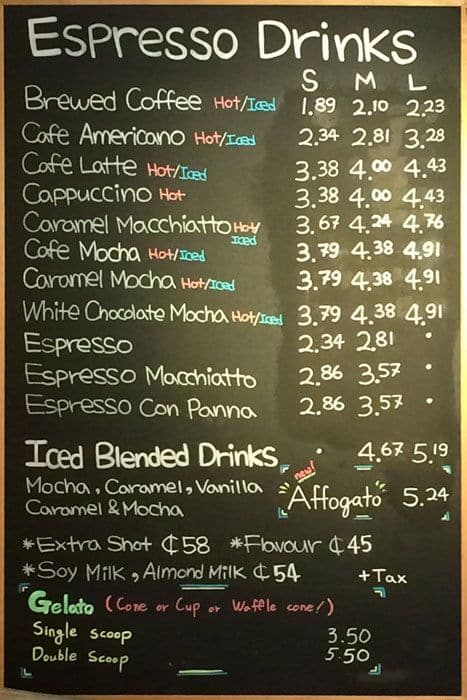 Espresso Drinks
S M L
Brewed Coffee Hot/Iced 1.89 2.10 2.23
Cafe Americano Hot/Iced 2.34 2.81 3.28
Cafe Latte Hot/Iced 3.38 4.00 4.43
Cappuccino Hot 3.38 4.00 4.43
Caramel Macchiatto Hot/Iced 3.67 4.24 4.76
Cafe Mocha Hot/Iced 3.79 4.38 4.91
Caramel Mocha Hot/Iced 3.79 4.38 4.91
White Chocolate Mocha Hot/Iced 3.79 4.38 4.91
Espresso 2.34 2.81 •
Espresso Macchiatto 2.86 3.57 •
Espresso Con Panna 2.86 3.57 •
Iced Blended Drinks • 4.67 5.19
Mocha, Caramel, Vanilla
Caramel & Mocha
new!
"Affogato" 5.24
*Extra Shot ₵58 *Flavour ₵45
*Soy Milk, Almond Milk ₵54 +Tax
Gelato (Cone or Cup or Waffle cone!)
Single scoop 3.50
Double Scoop 5.50